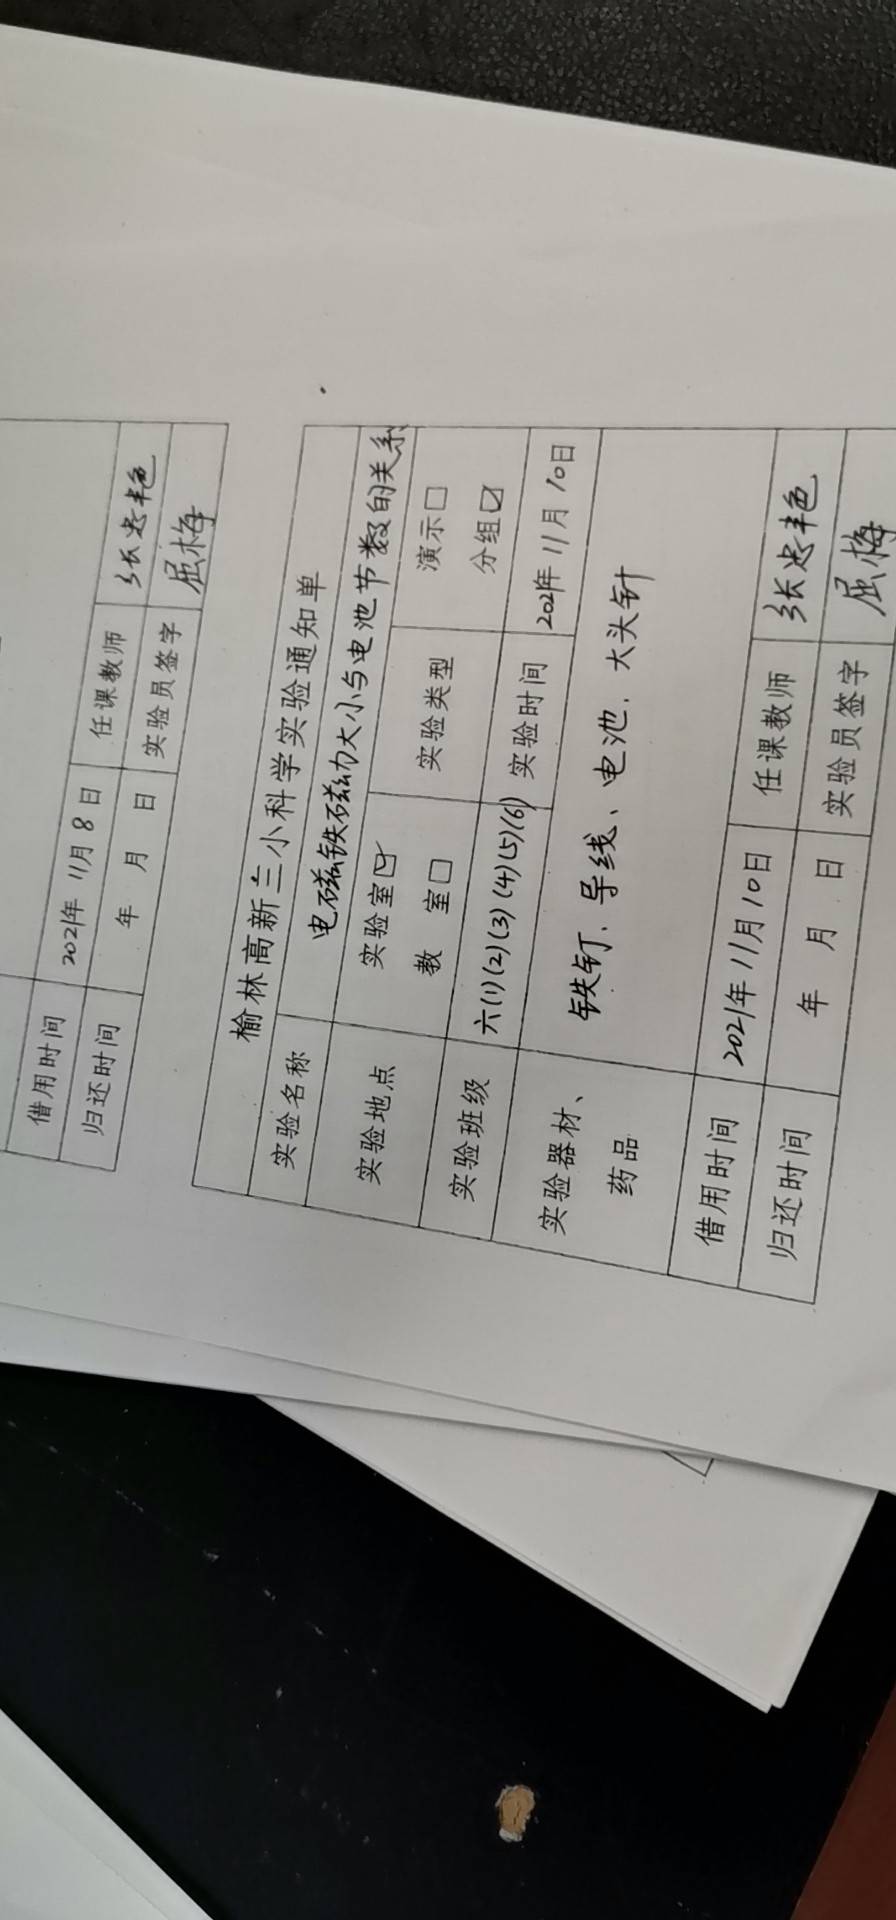 借用时间 2021年11月8日 任课教师 张忠艳
归还时间 年 月 日 实验员签字 屈梅
榆林高新三小科学实验通知单
实验名称 电磁铁磁力大小与电池节数的关系
实验地点 实验室☑ 教 室□ 实验类型 演示□ 分组☑
实验班级 六(1)(2)(3)(4)(5)(6) 实验时间 2021年11月10日
实验器材、
药品 铁钉、导线、电池、大头针
借用时间 2021年11月10日 任课教师 张忠艳
归还时间 年 月 日 实验员签字 屈梅